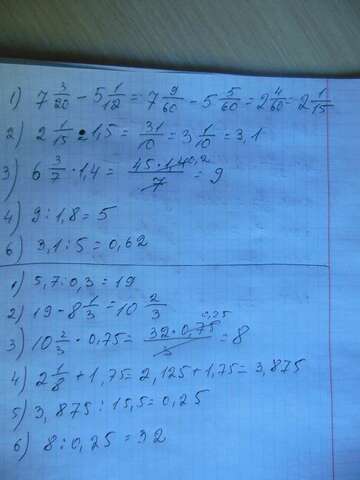 1) 7 3/20 - 5 1/12 = 7 9/60 - 5 5/60 = 2 4/60 = 2 1/15
2) 2 1/15 · 1,5 = 31/10 = 3 1/10 = 3,1
3) 6 3/7 · 1,4 = 45 · 1,4 0,2 / 7 = 9
4) 9 : 1,8 = 5
6) 3,1 : 5 = 0,62
1) 5,7 : 0,3 = 19
2) 19 - 8 1/3 = 10 2/3
3) 10 2/3 · 0,75 = 32 · 0,75 0,25 / 3 = 8
4) 2 1/8 + 1,75 = 2,125 + 1,75 = 3,875
5) 3,875 : 15,5 = 0,25
6) 8 : 0,25 = 32